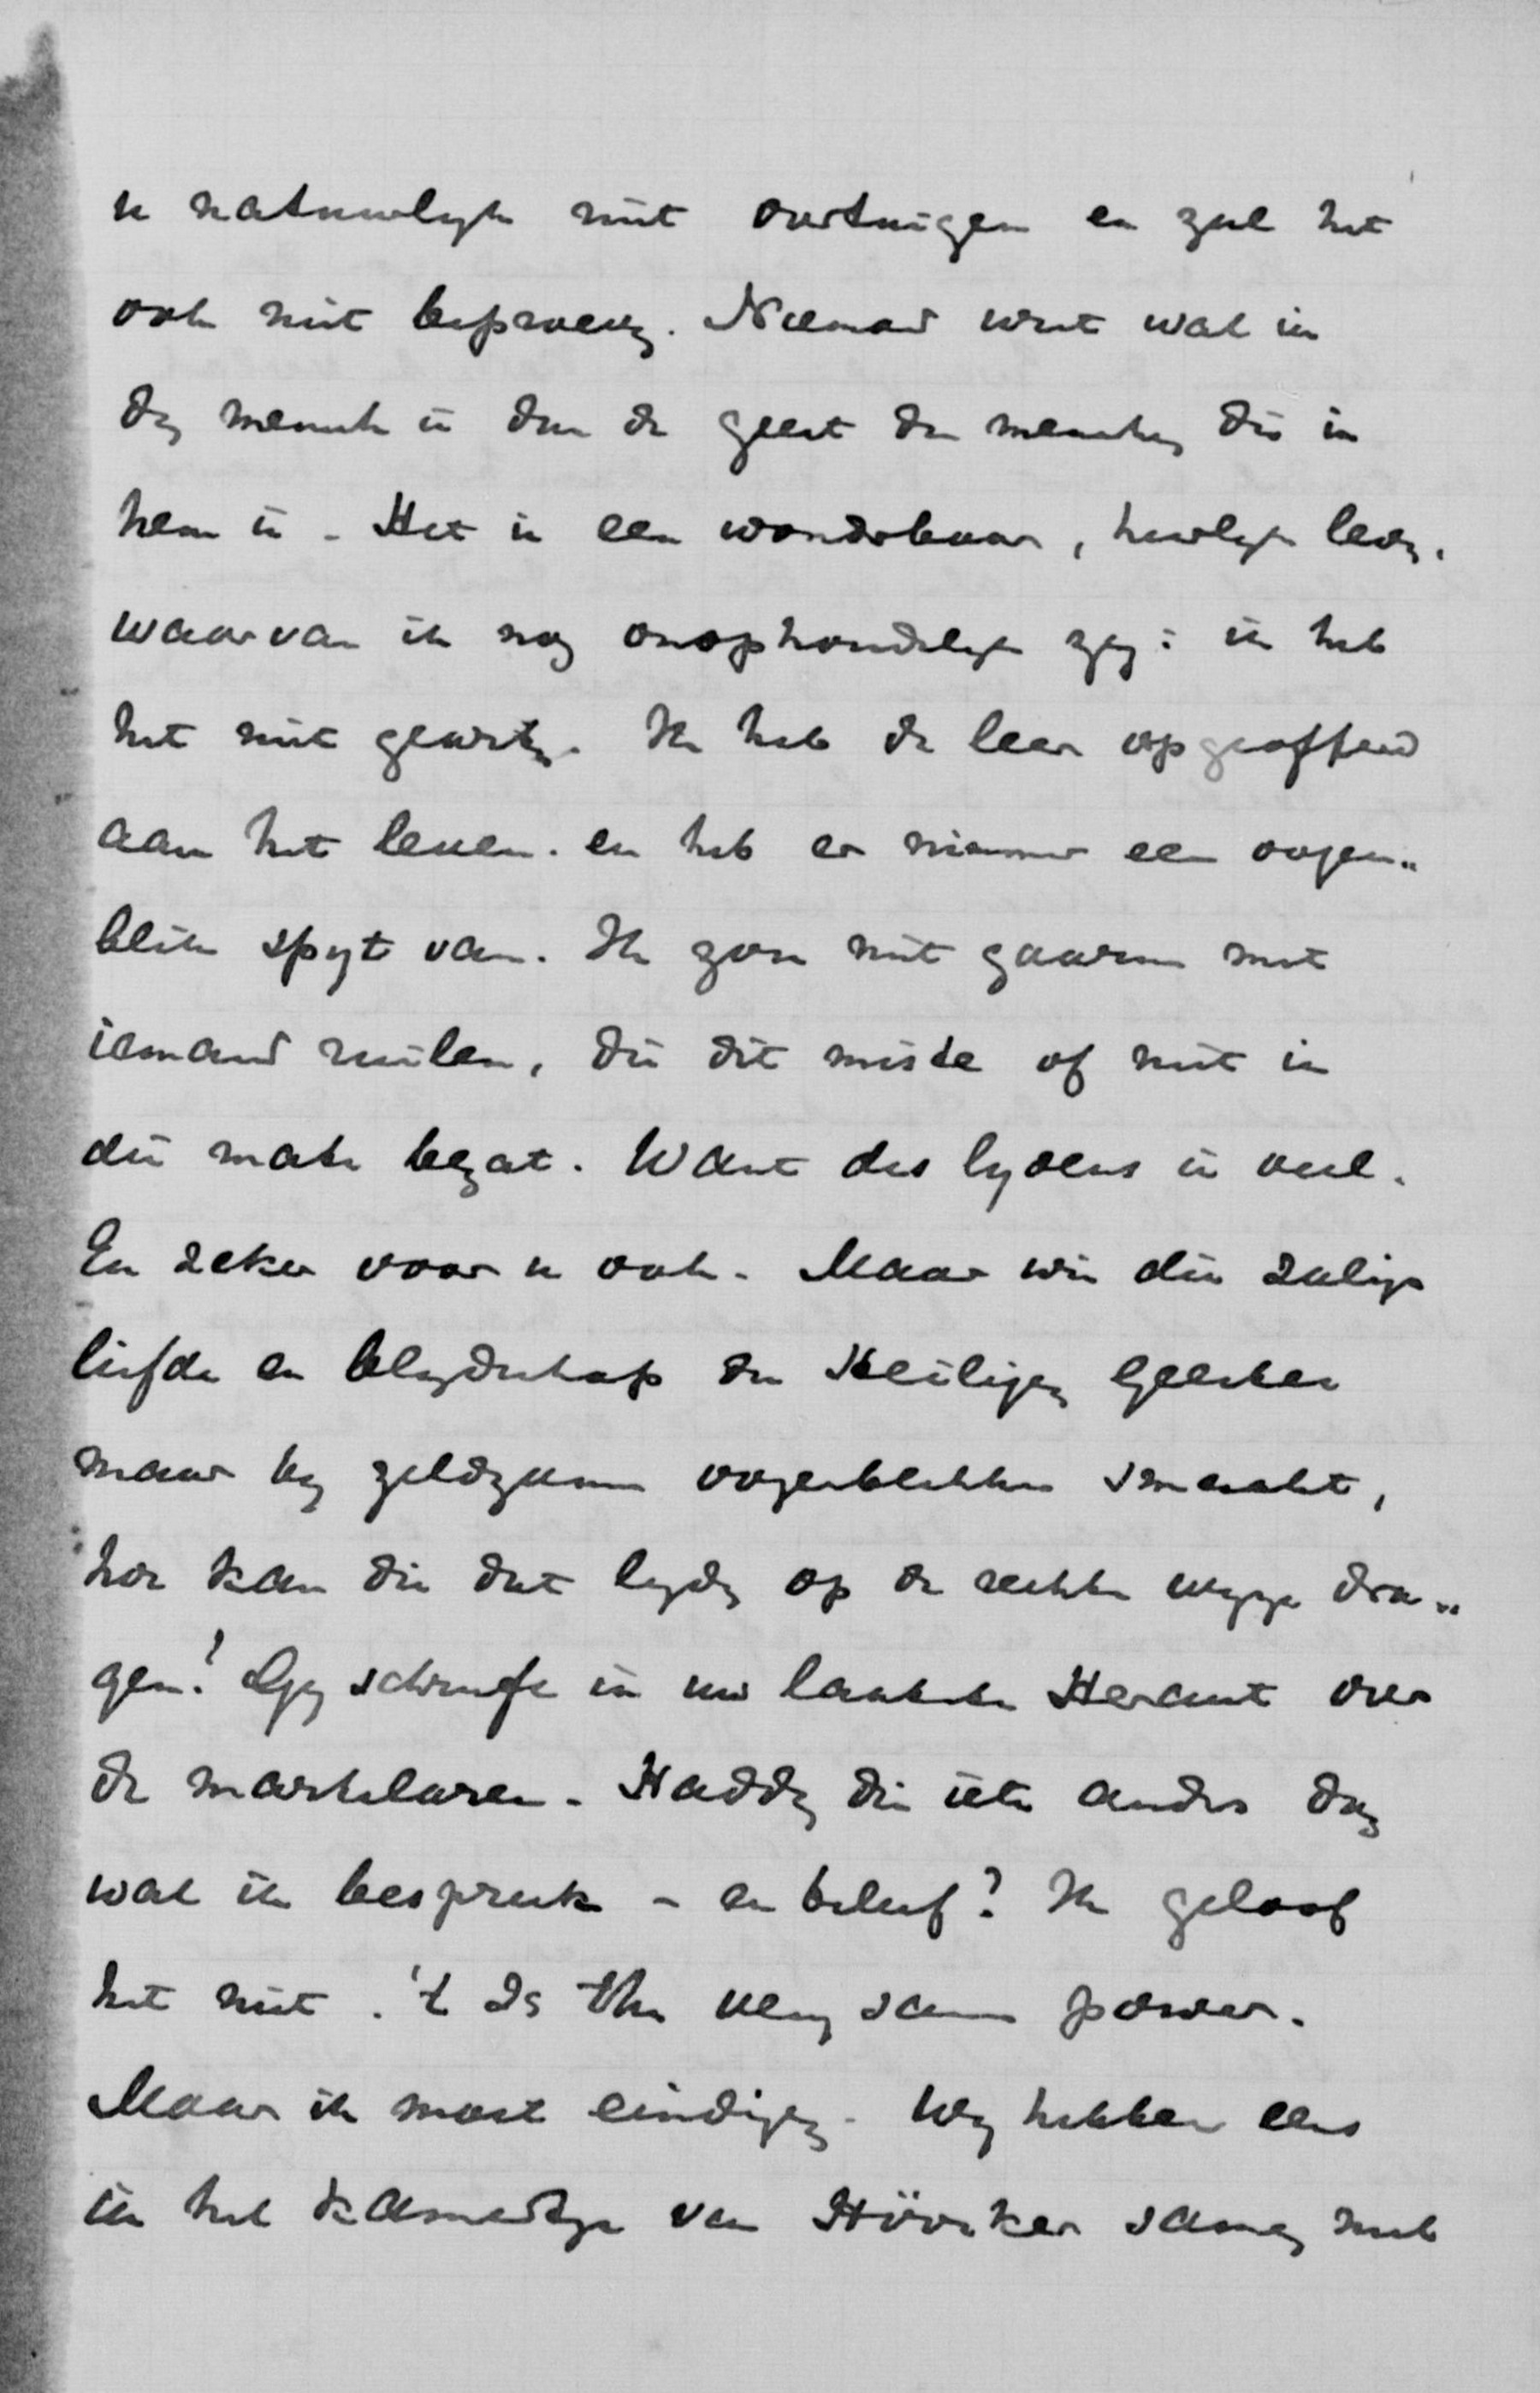 u natuurlyk niet overtuigen en zal het
ook niet beproeven. Niemand weet wat in
den mensch is dan de geest des menschen die in
hem is. Het is een wonderbaar, heerlyk leven.
waarvan ik nog onophoudelyk zeg: ik heb
het niet geweten. Ik heb de leer opgeofferd
aan het leven. en heb er nimmer een oogen„
blik spyt van. Ik zou niet gaarne met
iemand ruilen, die dit miste of niet in
die mate bezat. Want des lydens is veel.
En zeker voor u ook. Maar wie die zalige
liefde en blydschap des Heiligen Geestes
maar by zeldzame oogenblikken smaakt,
hoe kan die dat lyden op de rechte wyze dra„
gen! Gy schreeft in uw laatste Heraut over
de martelaren. Hadden die iets anders dan
wat ik bespreek – en beleef? Ik geloof
het niet. 't Is the very same power.
Maar ik moet eindigen. Wy hebben eens
in het kamertje van Höveker samen met